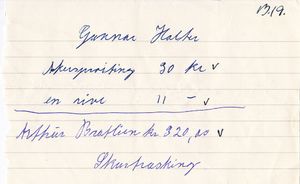 1319.
Gunnar Holthe
Akersprøiting 30 kr v
en rive 11 – v
Arthur Bratlien kr 320,00 v
Skurtresking